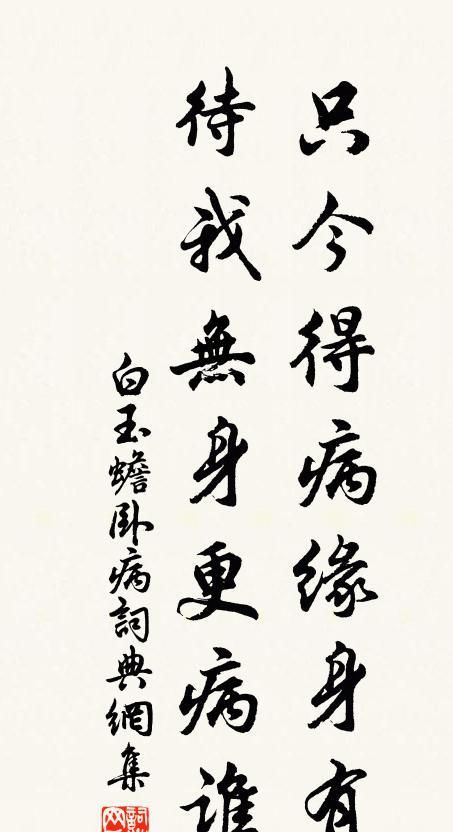 只今得病緣身有
待我無身更病誰
白玉蟾卧病詞典網集